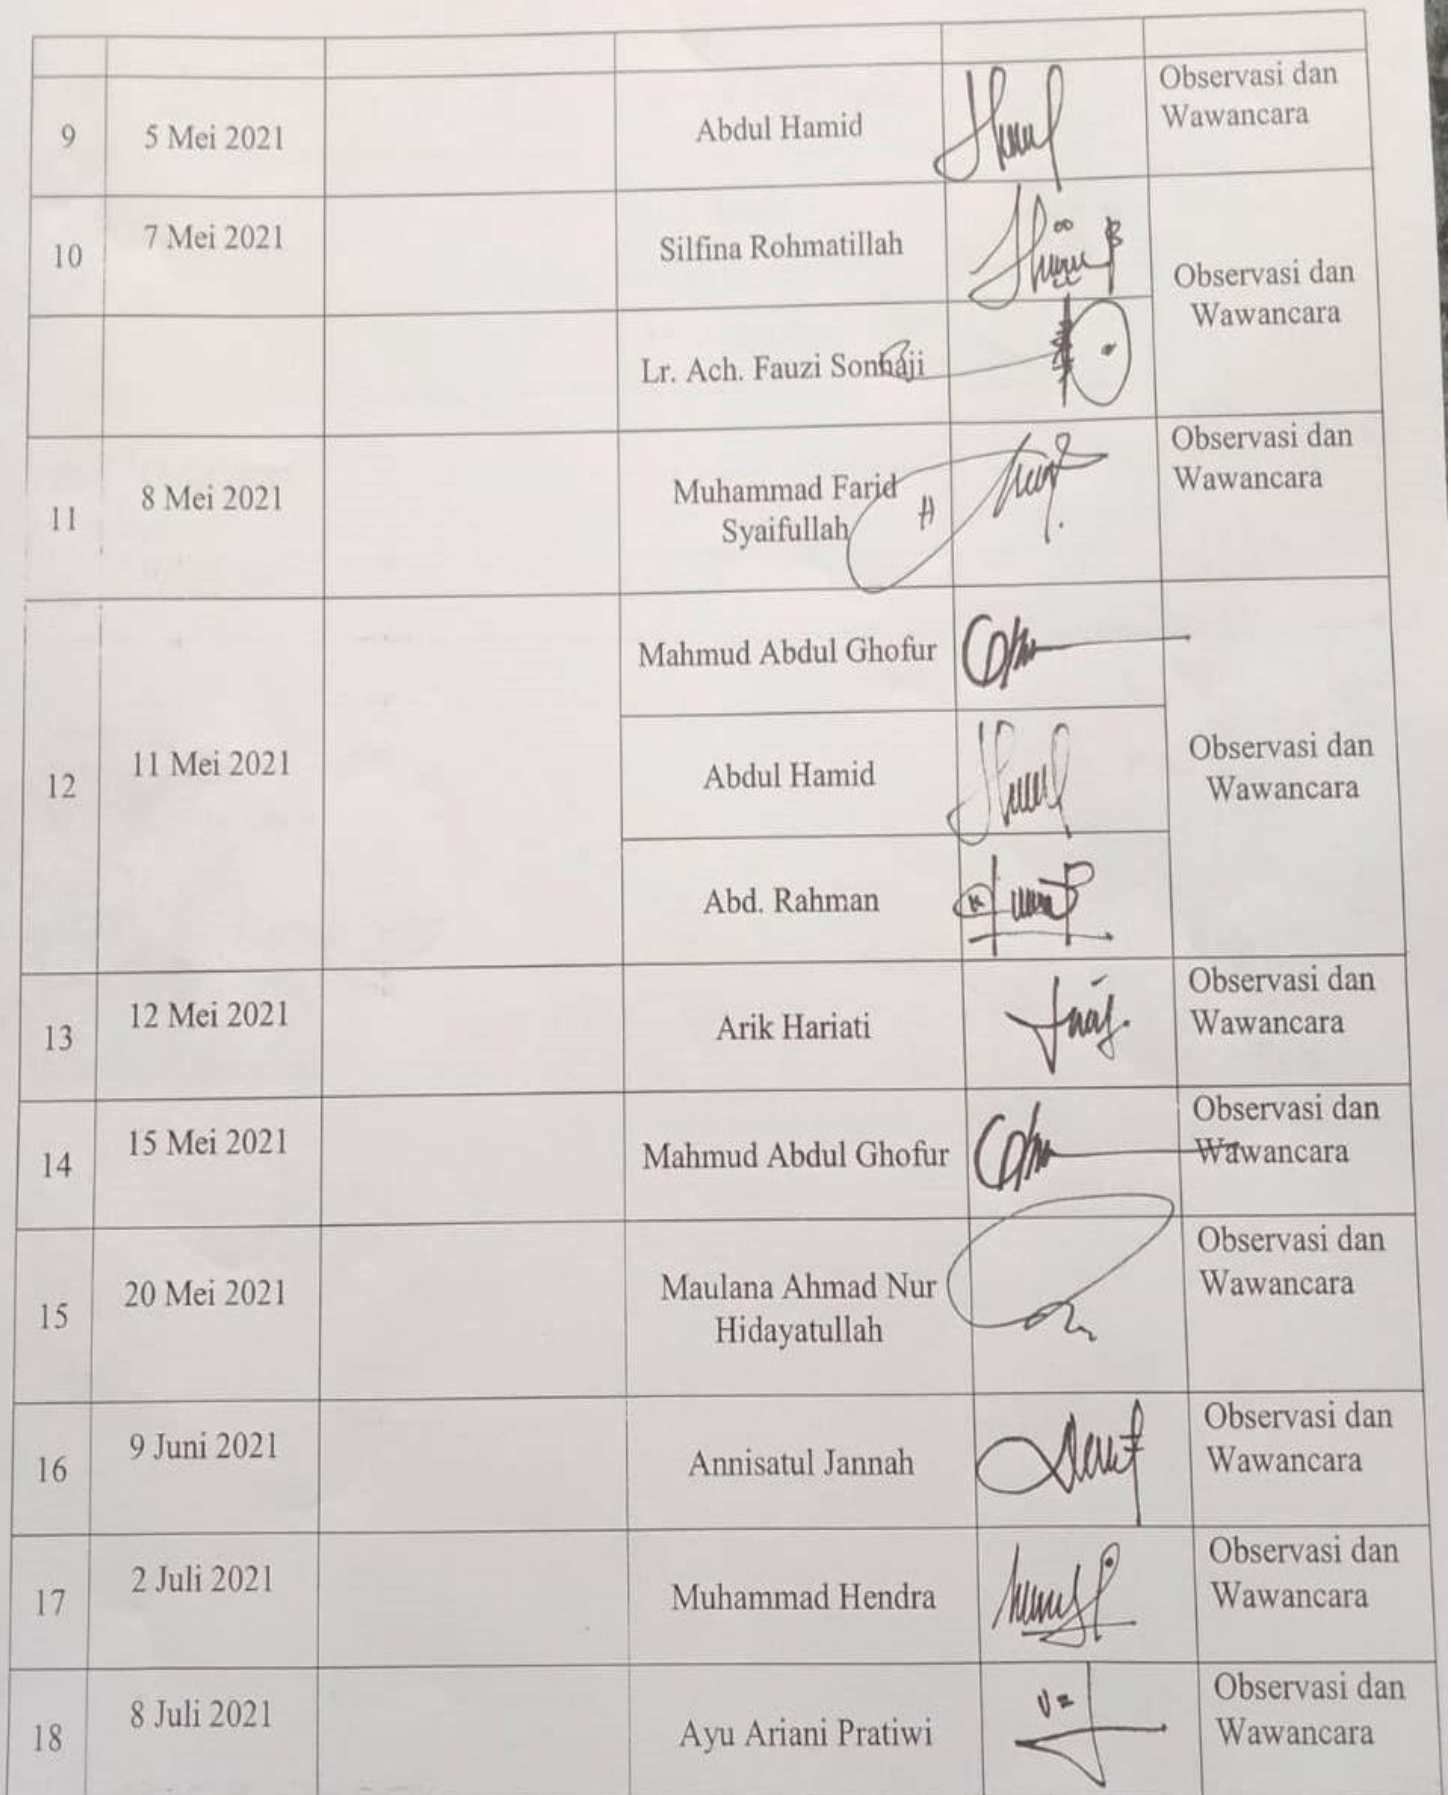 9
5 Mei 2021
Abdul Hamid
Observasi dan
Wawancara
10
7 Mei 2021
Silfina Rohmatillah
Observasi dan
Wawancara
Lr. Ach. Fauzi Sonhaji
11
8 Mei 2021
Muhammad Farid
Syaifullah
Observasi dan
Wawancara
12
11 Mei 2021
Mahmud Abdul Ghofur
Abdul Hamid
Abd. Rahman
Observasi dan
Wawancara
13
12 Mei 2021
Arik Hariati
Observasi dan
Wawancara
14
15 Mei 2021
Mahmud Abdul Ghofur
Observasi dan
Wawancara
15
20 Mei 2021
Maulana Ahmad Nur
Hidayatullah
Observasi dan
Wawancara
16
9 Juni 2021
Annisatul Jannah
Observasi dan
Wawancara
17
2 Juli 2021
Muhammad Hendra
Observasi dan
Wawancara
18
8 Juli 2021
Ayu Ariani Pratiwi
Observasi dan
Wawancara